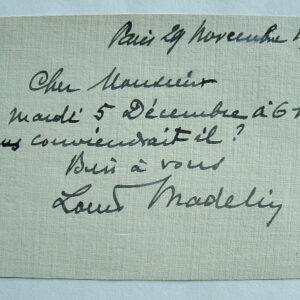 Paris 29 Novembre
Cher Monsieur
Mardi 5 Décembre à 6 h
vous conviendrait il ?
Bien à vous
Louis Madelin